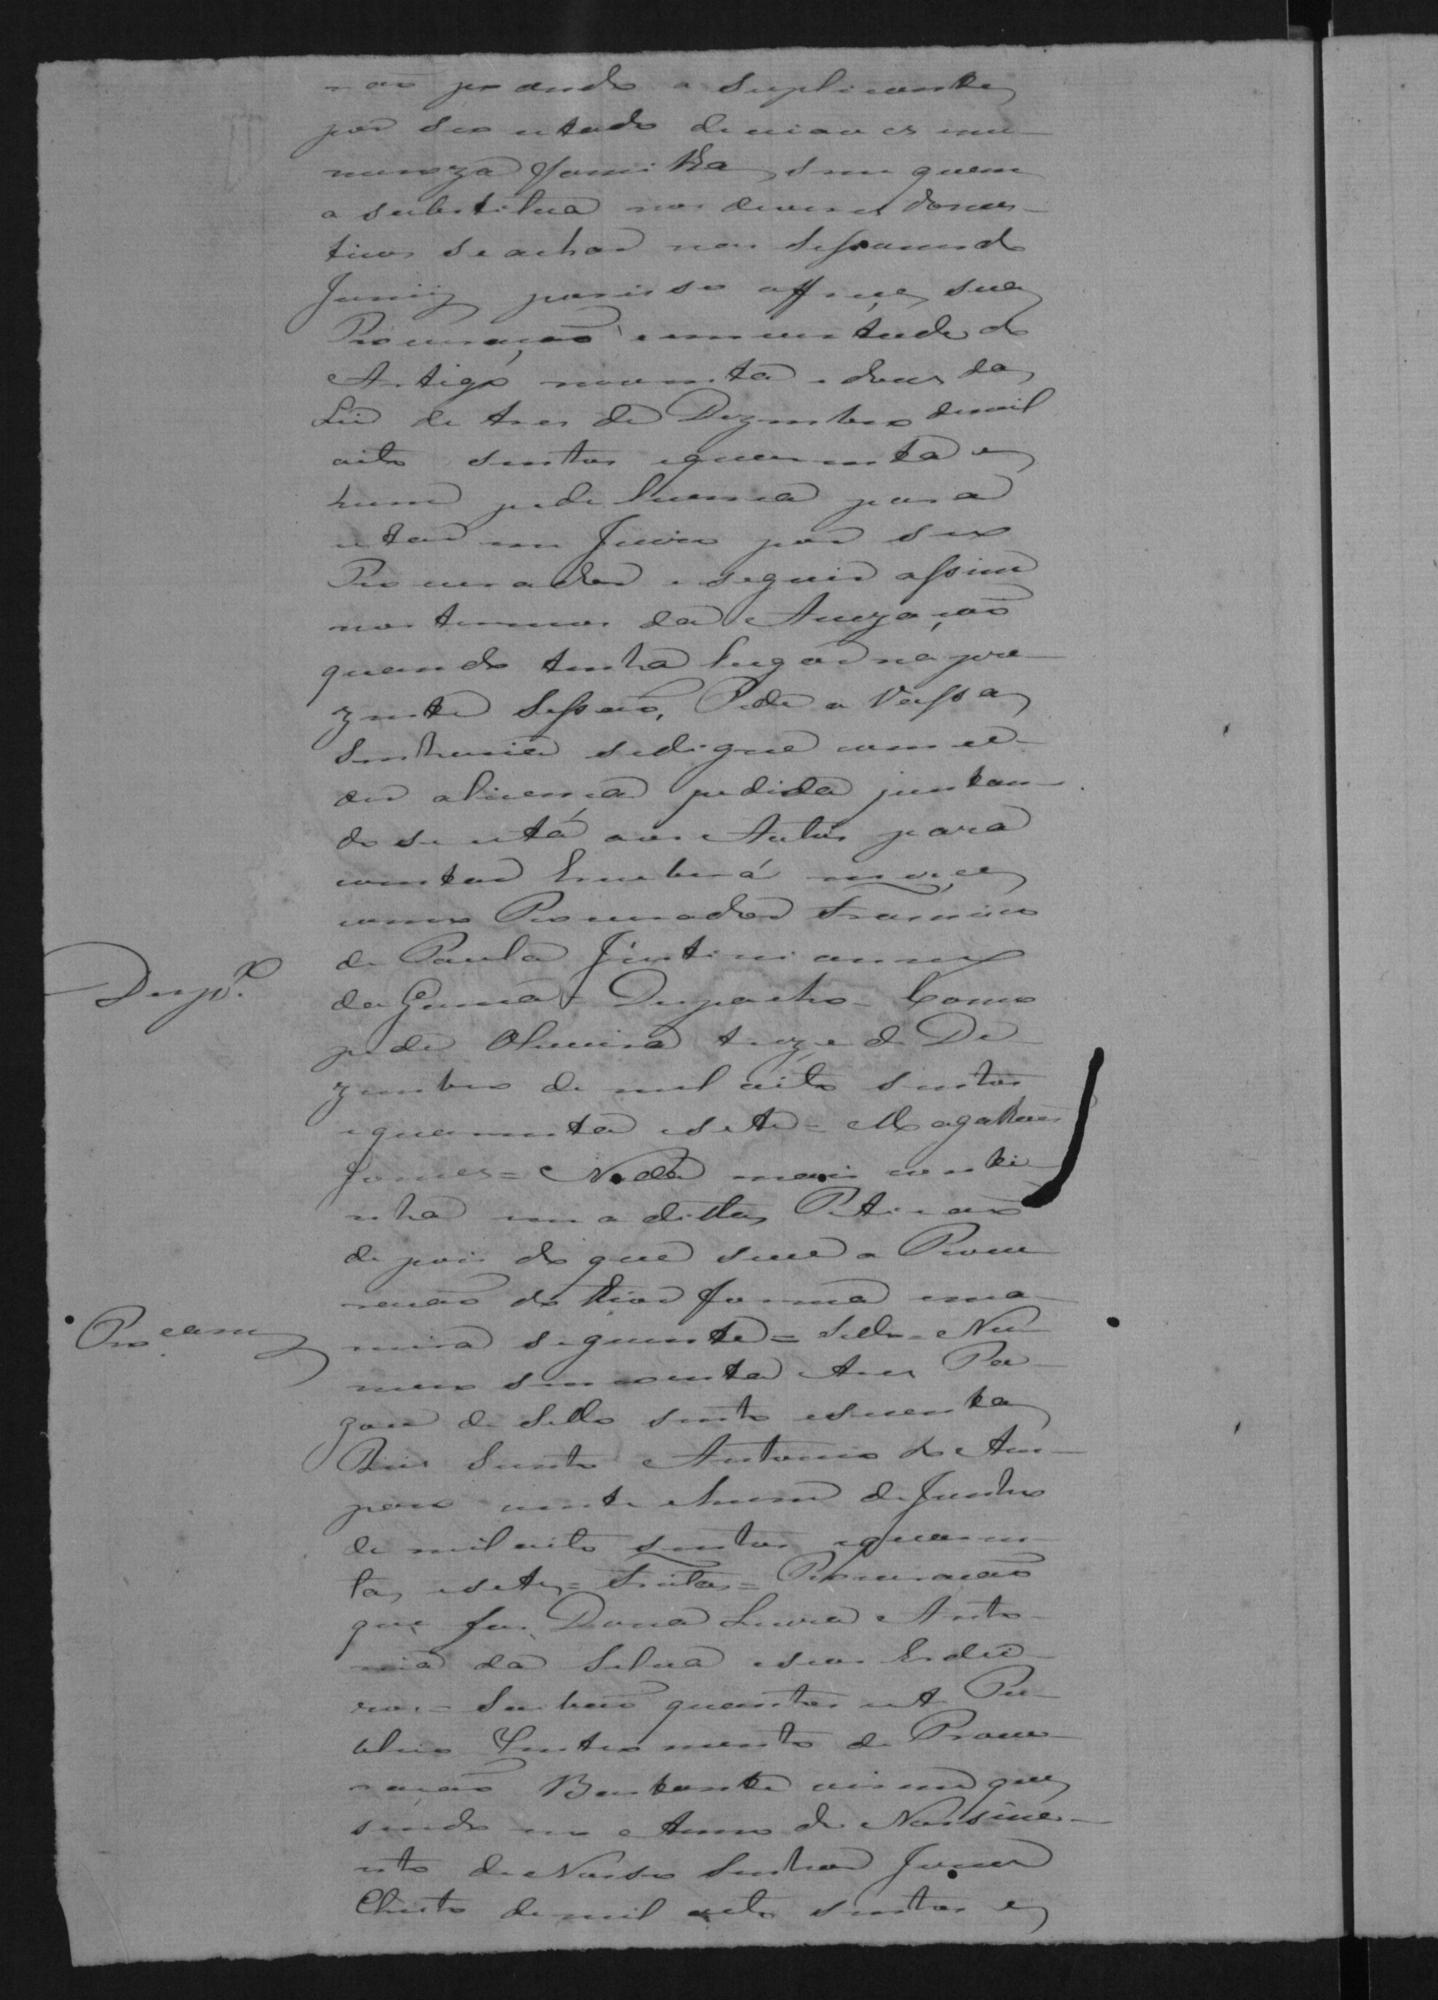 não podendo a Suplicante
por seo estado de viuva e nu-
meroza familha, sem quem
a substitua nos deveres domes-
ticos se achar nos
Juiz por isso offrece sua
Procuração em virtude do
Artigo noventa e dous da
Lei de tres de Dezembro de mil
oito sentos equarenta e
hum pede licença para
estar em Juizo por seo
Procurador e seguir assim
nos termos da Acuzação
quando tenha lugar na pre-
zente Sessão, Pede a Vossa
Senhoria se digne conce-
der alicença pedida juntan-
do se esta aos Autos para
constar E receberá merce
como Procurador Francisco
de Paula Justinianno
da Gama = Despacho = Como
pede Oliveira treze de De-
zembro de mil oito sentos
equarenta esete = Magalhaens
Gomes = Nada mais conti-
nha em a ditta Petição
depois do que se ve a Procu-
ração do theor forma ema-
neira seguinte = Sello = Nu-
mero sincoenta e tres Pa-
gou de Sello sento esecenta
Reis Santo Antonio do Am-
paro vinte e hum de Junho
de mil oito sentos equaren-
ta, esete = Freitas = Procuração
que faz Dona Anto-
nia da Silva eseos Erdei-
ros = Saibão quantos este Pu-
blico Instromento de Procu-
ração Bastante virem que
sendo no Anno do Nassime-
nto de Nosso Senhor Jezus
Christo de mil oito sentos e
Desp.º
Procam